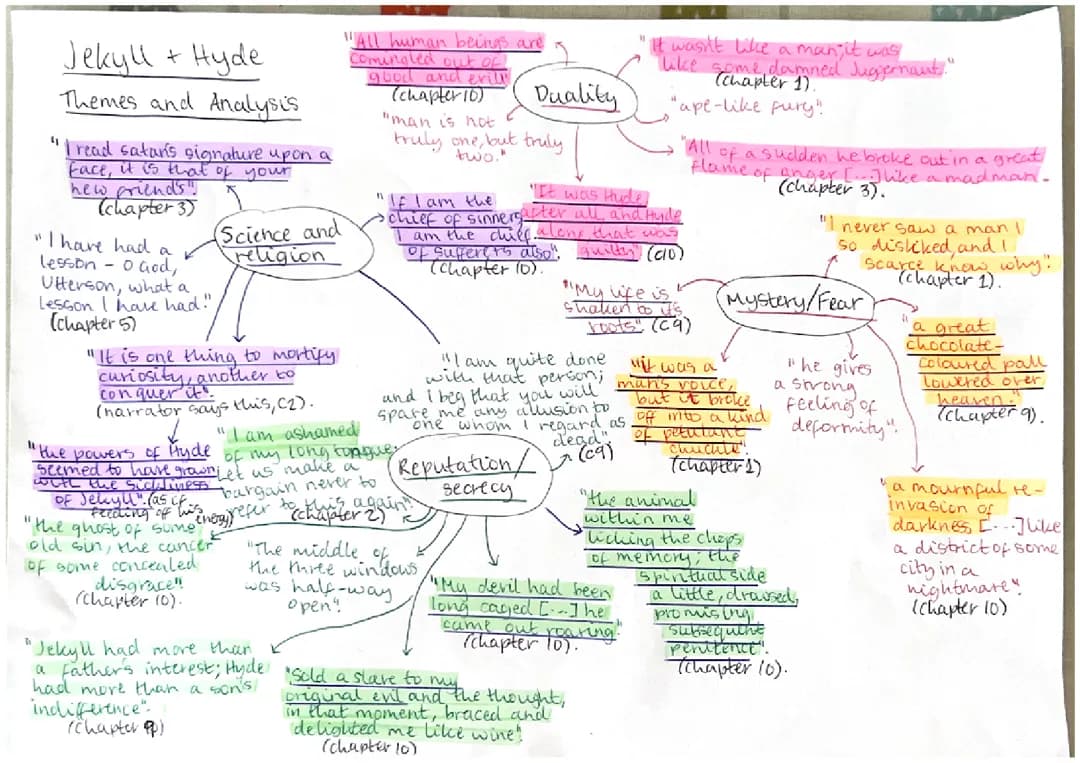 Jekyll + Hyde
Themes and Analysis
"All human beings are
comingled out of
good and evil"
(chapter 10)
"man is not
truly one, but truly
two."
Duality
"It wasn't like a man; it was
like some damned Juggernaut."
(chapter 1).
"ape-like fury".
"All of a sudden he broke out in a great
flame of anger [...] like a madman-
(chapter 3).
"It was Hyde
after all, and Hyde
alone that was
guilty" (c10)
"I read satan's signature upon a
face, it is that of your
new friends"
(chapter 3)
Science and
religion
"If I am the
chief of sinners
I am the chief
of sufferers also".
(chapter 10).
"I have had a
lesson - O God,
Utterson, what a
lesson I have had!"
(chapter 5)
"It is one thing to mortify
curiosity, another to
conquer it".
(narrator says this, c2).
"the powers of Hyde
seemed to have grown
with the sickliness
of Jekyll". (as if
feeding of his
energy)
Mystery/Fear
"I never saw a man I
so disliked, and I
scarce know why".
(chapter 1).
"My life is
shaken to its
roots". (c9)
"it was a
man's voice,
but it broke
off into a kind
of petulant
chuckle".
(chapter 1)
"he gives
a strong
feeling of
deformity".
"a great
chocolate-
coloured pall
lowered over
heaven."
(chapter 9).
"a mournful re-
invasion of
darkness [...] like
a district of some
city in a
nightmare".
(chapter 10)
Reputation/
secrecy
"I am quite done
with that person;
and I beg that you will
spare me any allusion to
one whom I regard as
dead".
(c9)
"I am ashamed
of my long tongue.
Let us make a
bargain never to
refer to this again".
(chapter 2)
"the ghost of some
old sin, the cancer
of some concealed
disgrace".
(chapter 10).
"The middle of
the three windows
was half-way
open".
"My devil had been
long caged [...] he
came out roaring"
(chapter 10).
"the animal
within me
licking the chops
of memory; the
spiritual side
a little, drowsed,
promising
subsequent
penitence".
(chapter 10).
"Jekyll had more than
a father's interest; Hyde
had more than a son's
indifference".
(chapter
"Sold a slave to my
original evil and the thought,
in that moment, braced and
delighted me like wine".
(chapter 10)